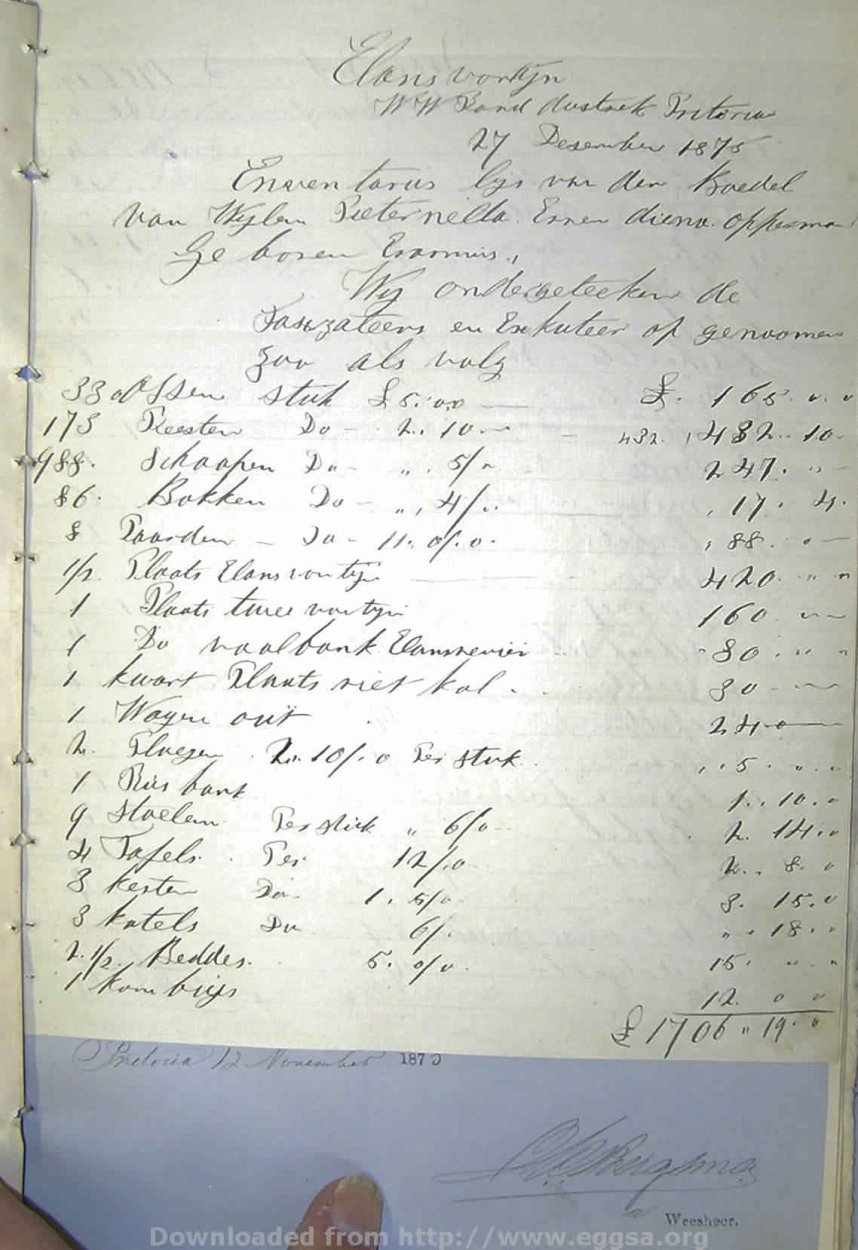 Elans vontyn
WW Rand dustrek Pretoria
27 Desember 1875
Enaventarus lys van den Boedel
van Wylen Pieternella diena. Opperman
Ge boren Erasmus.,
Wy ondergeteeken de
Taxzateers en Exkuteer op genoomen
zoo als volg
33 Ossen stuk £ 5. 0,0 £. 165. 0. 0
173 Beesten Do - 2. 10. - 432. 432. 10-
988. Schaapen Do - ,, . 5/- 247. ,, -
86. Bokken Do - ,, 4/.. . 17. 4.
8 Paarden - Do - 11. 0/. 0. . 88. . -
1/2 Plaats Elans von tyn 420. ,, ,,
1 Plaats twee von tyn 160. - -
1 Do vaalbank Elansrevier 80. ,, ,,
1 kwart Plaats riet kol . . 30 - -
1 Wagen out 24. 0 -
2. Ploegen 2. 10/. 0 Per stuk . ,, 5. ,, .
1 Rus bank 1. . 10. .
9 Stoelen Per stuk ,, 6/0 2. 14. 0
4 Tafels . Per 12/. 0 2. . 8. 0
3 kesten Do- 1. 5/0 3. 15. 0
3 katels Do 6/. ,, . 18. .
2. 1/2. Beddes. 5. 0/0. 15. ,, ,,
1 kom buys 12. 0 0
£ 1706 ,, 19. 0
Pretoria 12 November 187
Bergsma
Weesheer.
Downloaded from http://www.eggsa.org